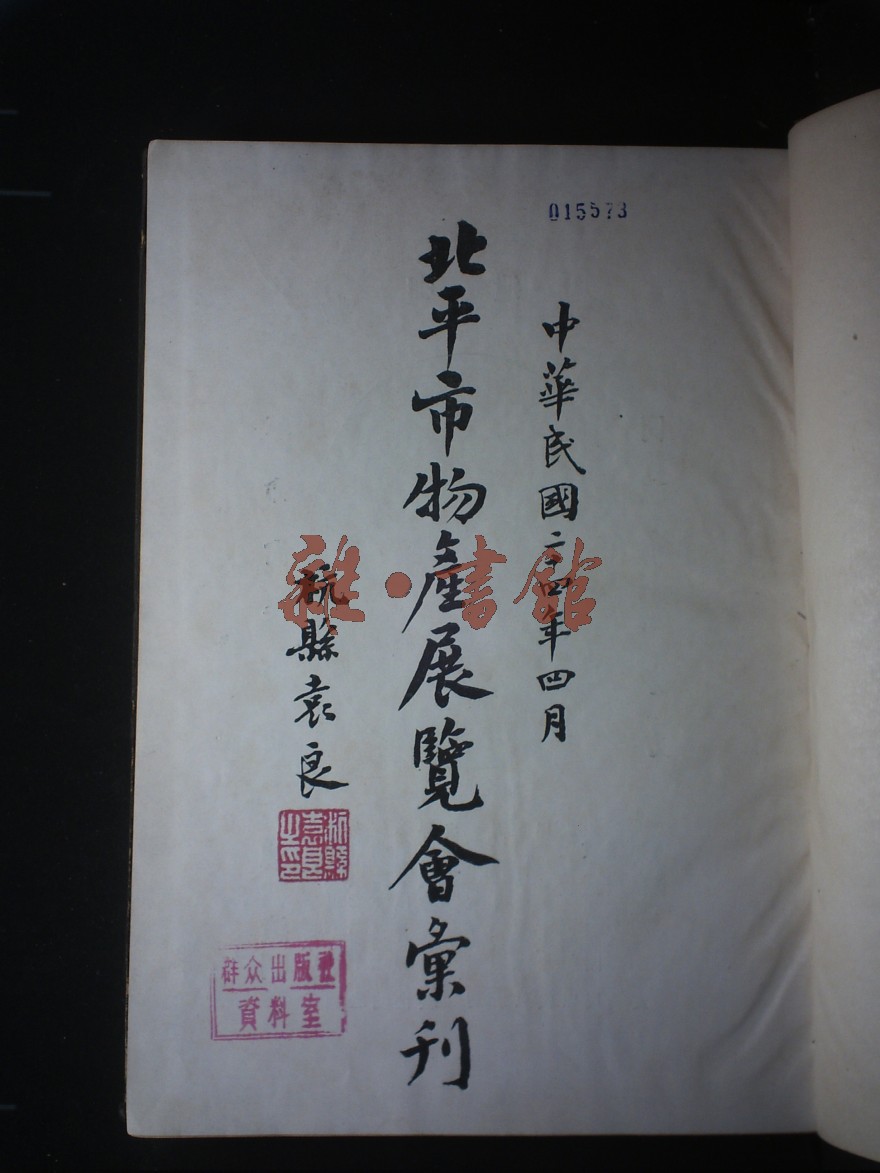 015573
中華民國二十四年四月
北平市物產展覽會彙刊
杭縣袁良
杭縣袁良之印
群众出版社
資料室
雜·書館